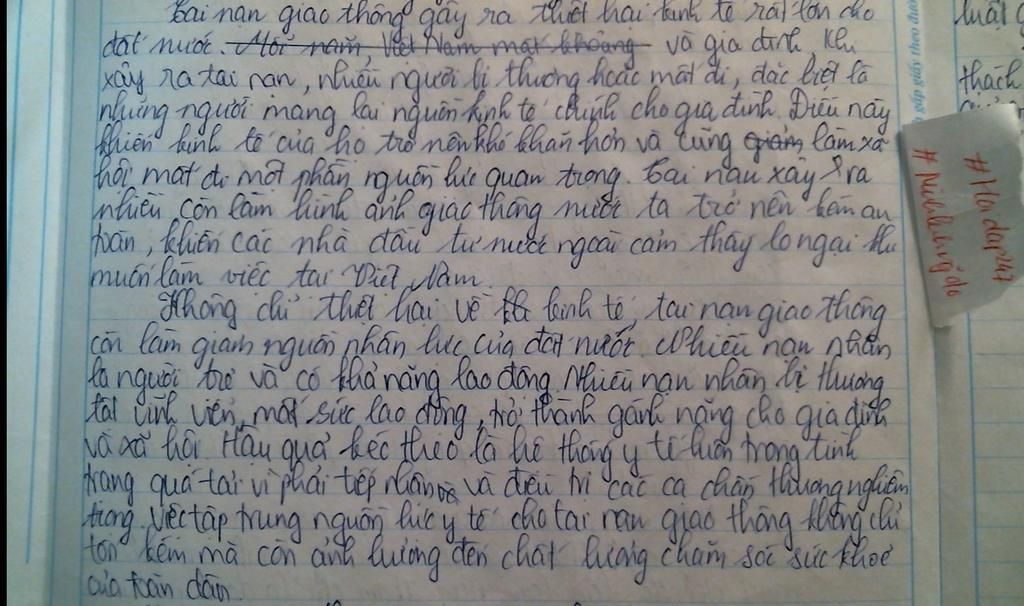 Tai nạn giao thông gây ra thiệt hại kinh tế rất lớn cho
đất nước. Mỗi năm, Việt Nam mất khoảng và gia đình. Khi
xảy ra tai nạn, nhiều người bị thương hoặc mất đi, đặc biệt là
những người mang lại nguồn kinh tế chính cho gia đình. Điều này
khiến kinh tế của họ trở nên khó khăn hơn và cũng giảm làm xã
hội mất đi một phần nguồn lực quan trọng. Tai nạn xảy ra
nhiều còn làm hình ảnh giao thông nước ta trở nên kém an
toàn, khiến các nhà đầu tư nước ngoài cảm thấy lo ngại khi
muốn làm việc tại Việt Nam.
Không chỉ thiệt hại về kinh tế, tai nạn giao thông
còn làm giảm nguồn nhân lực của đất nước. Nhiều nạn nhân
là người trẻ và có khả năng lao động. Nhiều nạn nhân bị thương
tật vĩnh viễn, mất sức lao động, trở thành gánh nặng cho gia đình
và xã hội. Hậu quả kéo theo là hệ thống y tế luôn trong tình
trạng quá tải vì phải tiếp nhận và điều trị các ca chấn thương nghiêm
trọng. Việc tập trung nguồn lực y tế cho tai nạn giao thông không chỉ
tốn kém mà còn ảnh hưởng đến chất lượng chăm sóc sức khoẻ
của toàn dân.
gấp giấy theo đườn
luật
thách
#Hoidap247